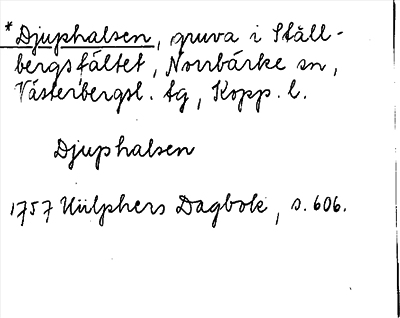 *Djuphalsen, gruva i Ställ-
bergsfältet, Norrbärke sn,
Västerbergsl. tg, Kopp. l.
Djuphalsen
1757 Hülphers Dagbok, s. 606.